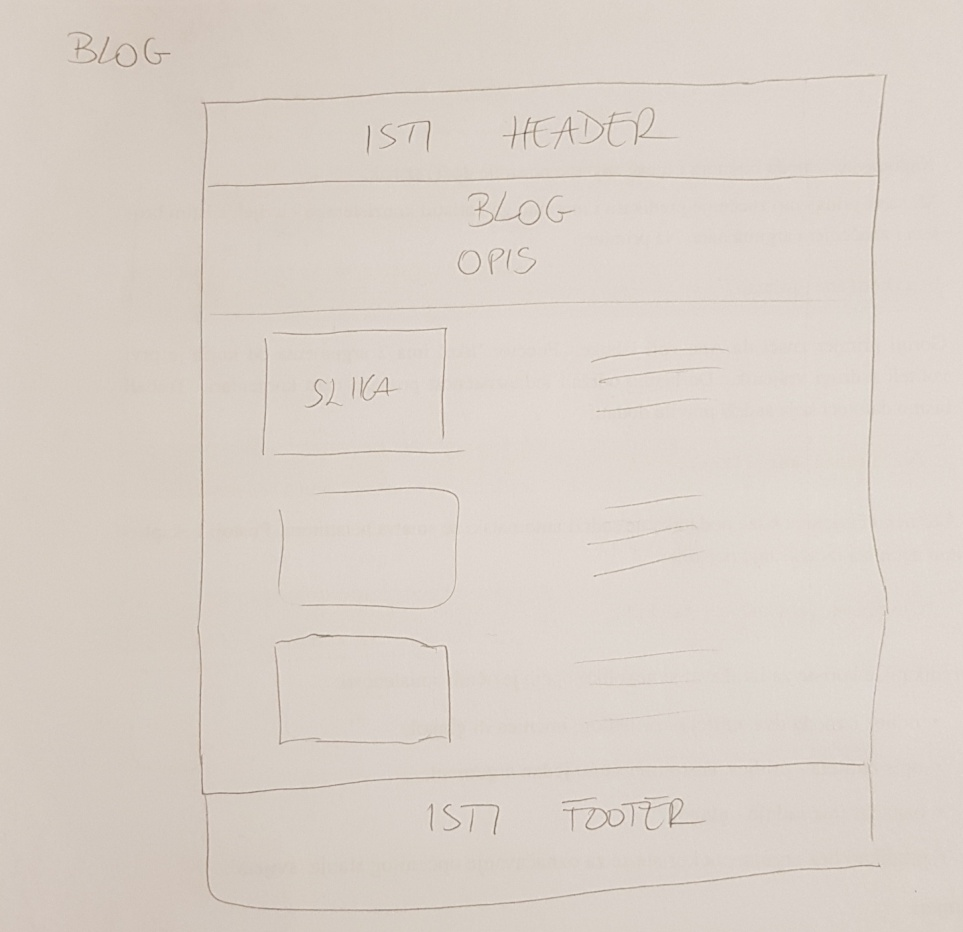 BLOG
ISTI HEADER
BLOG
OPIS
SLIKA
ISTI FOOTER